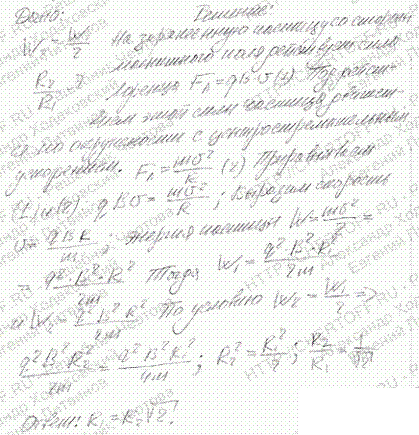 Дано: Решение:
W₂ = W/2 На заряженную частицу со стороны
магнитного поля действует сила
R₂/R₁ - ? Лоренца Fл = qBυ (1) Под действ-
ием этой силы частица движет-
ся по окружности с центростремительным
ускорением. Fл = mυ²/R (2) Приравниваем
(1) и (2) qBυ = mυ²/R ; Выразим скорость
υ = qBR/m ; Энергия частицы W = mυ²/2 =
= q²B²R²/2m Тогда W₁ = q²B²R₁²/2m
и W₂ = q²B²R₂²/2m По условию W₂ = W₁/2 =>
q²B²R₂²/2m = q²B²R₁²/4m ; R₂² = R₁²/2 ; R₂/R₁ = 1/√2
Ответ: R₁ = R₂√2.